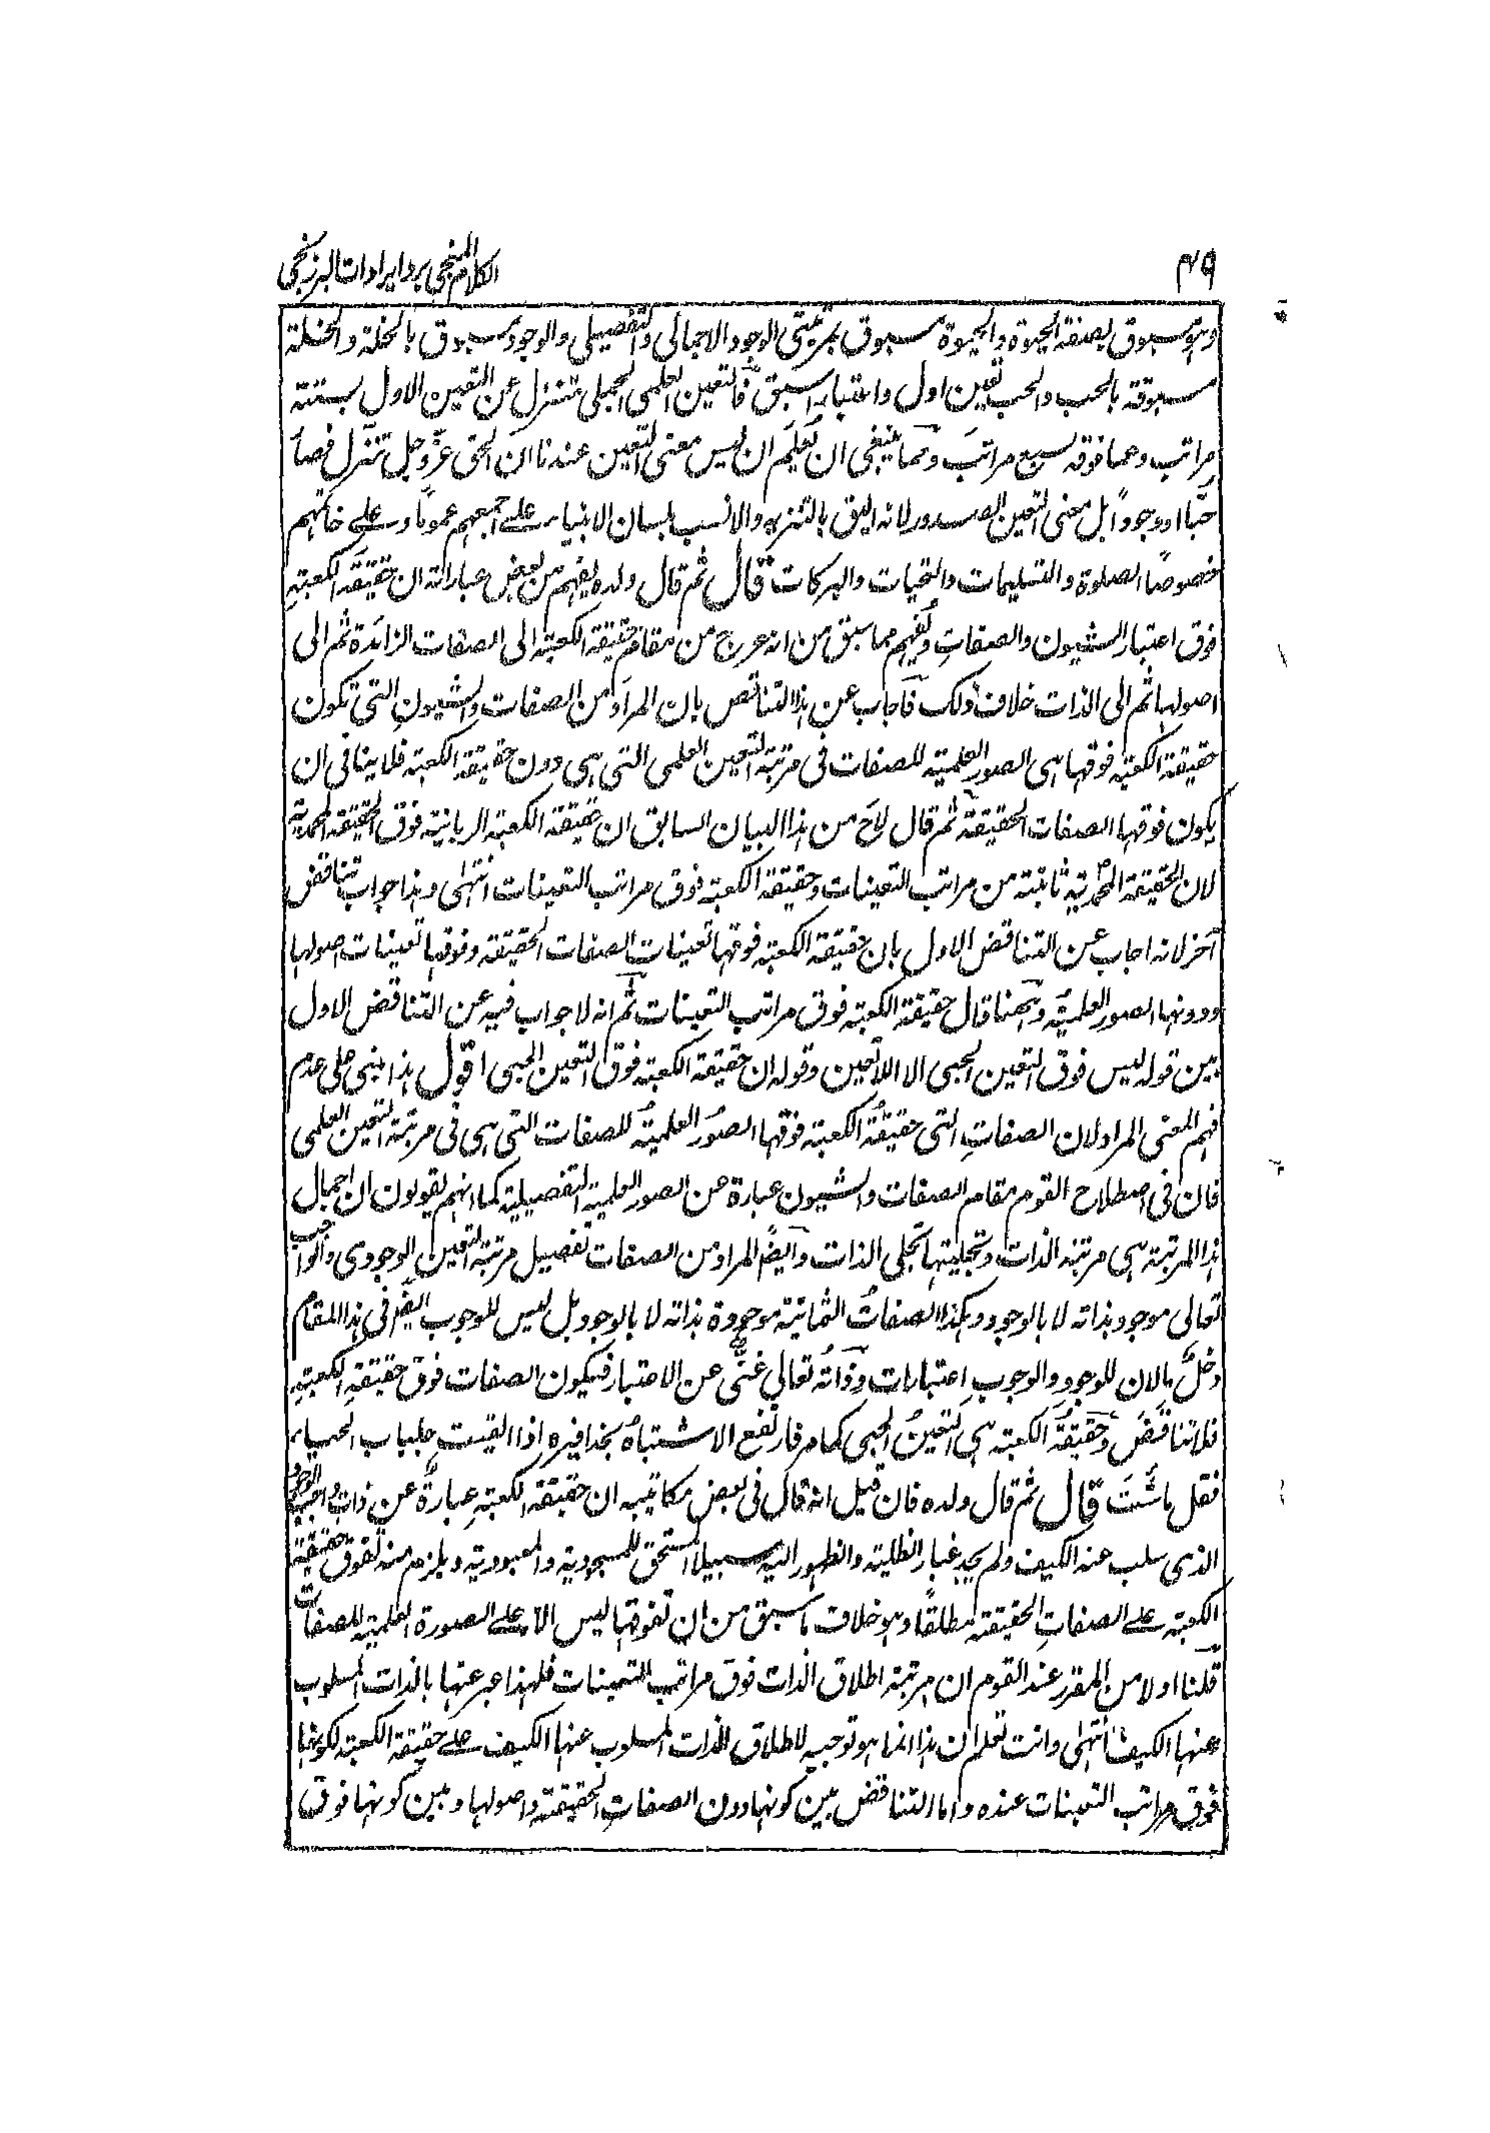 ٤٩
الكلام المنجي برد ايرادات البرزنجي
وهو مسبوق بصفة الحيوة والحيوة مسبوق بمرتبتي الوجود الاجمالي والتفصيلي والوجود مسبوق بالخلة والخلة
مسبوقة بالحب والحب تعين اول واعتبار اسبق فالتعين العلمي الجملي تنزل عن التعين الاول بستة
مراتب وعما فوقه سبع مراتب ومما ينبغي ان تعلم ان ليس معنى التعين عندنا ان الحق عز وجل تنزل فصار
حبا او وجودا بل معنى التعين الصدور لانه اليق بالتنزيه والانسب بلسان الانبياء على جميعهم عموما وعلى خاتمهم
خصوصا الصلوة والتسليمات والتحيات والبركات قال ثم قال ولده يفهم من بعض عباراته ان حقيقة الكعبة
فوق اعتبار الشيون والصفات ويفهم مما سبق من انه عرج من مقام حقيقة الكعبة الى الصفات الزائدة ثم الى
اصولها ثم الى الذات خلاف ذلك فاجاب عن هذا التناقض بان المراد من الصفات والشيون التي تكون
حقيقة الكعبة فوقها هي الصور العلمية للصفات في مرتبة التعين العلمي التي هي دون حقيقة الكعبة فلا ينافي ان
يكون فوقها الصفات الحقيقة ثم قال لاح من هذا البيان السابق ان حقيقة الكعبة الربانية فوق الحقيقة المحمدية
لان الحقيقة المحمدية ثابتة من مراتب التعينات وحقيقة الكعبة فوق مراتب التعينات انتهى وهذا جواب تناقض
آخر لانه اجاب عن التناقض الاول بان حقيقة الكعبة فوقها تعينات الصفات الحقيقة وفوقها تعينات اصولها
ودونها الصور العلمية وههنا قال حقيقة الكعبة فوق مراتب التعينات ثم انه لا جواب فيه عن التناقض الاول
بين قوله ليس فوق التعين الحبي الا اللاتعين وقوله ان حقيقة الكعبة فوق التعين الحبي اقول هذا مبني على عدم
فهم المعنى المراد لان الصفات التي حقيقة الكعبة فوقها الصور العلمية للصفات التي هي في مرتبة التعين العلمي
فان في اصطلاح القوم مقام الصفات والشيون عبارة عن الصور العلمية التفصيلية كما انهم يقولون ان اجمال
هذا المرتبة هي مرتبة الذات وتجليتها تجلي الذات وايضا المراد من الصفات تفصيل مرتبة التعين الوجودي والواجب
تعالى موجود بذاته لا بالوجود وهكذا الصفات الثمانية موجودة بذاته لا بالوجود بل ليس للوجوب ايضا في هذا المقام
دخل ما لان للوجود والوجوب اعتبارات وذاته تعالى غني عن الاعتبار فيكون الصفات فوق حقيقة الكعبة
فلا تناقض وحقيقة الكعبة هي التعين الحبي كما مر فارتفع الاشتباه بحذافيره اذا القيت جلباب الحياء
فقل ما شئت قال ثم قال ولده فان قيل انه قال في بعض مكاتيبه ان حقيقة الكعبة عبارة عن ذات واجب الوجود
الذي سلب عنه الكيف ولم يجد غبار الظلية والظهور اليه سبيلا المستحق للمسجودية والمعبودية ويلزم منه تفوق حقيقة
الكعبة على الصفات الحقيقة مطلقا وهو خلاف ما سبق من ان تفوقها ليس الا على الصورة العلمية للصفات
قلنا اولا من المقرر عند القوم ان مرتبة اطلاق الذات فوق مراتب التعينات فلهذا عبر عنها بالذات المسلوب
عنها الكيف انتهى وانت تعلم ان هذا انما هو توجيه لاطلاق الذات المسلوب عنها الكيف على حقيقة الكعبة لكونها
فوق مراتب التعينات عنده واما التناقض بين كونها دون الصفات الحقيقة واصولها وبين كونها فوق